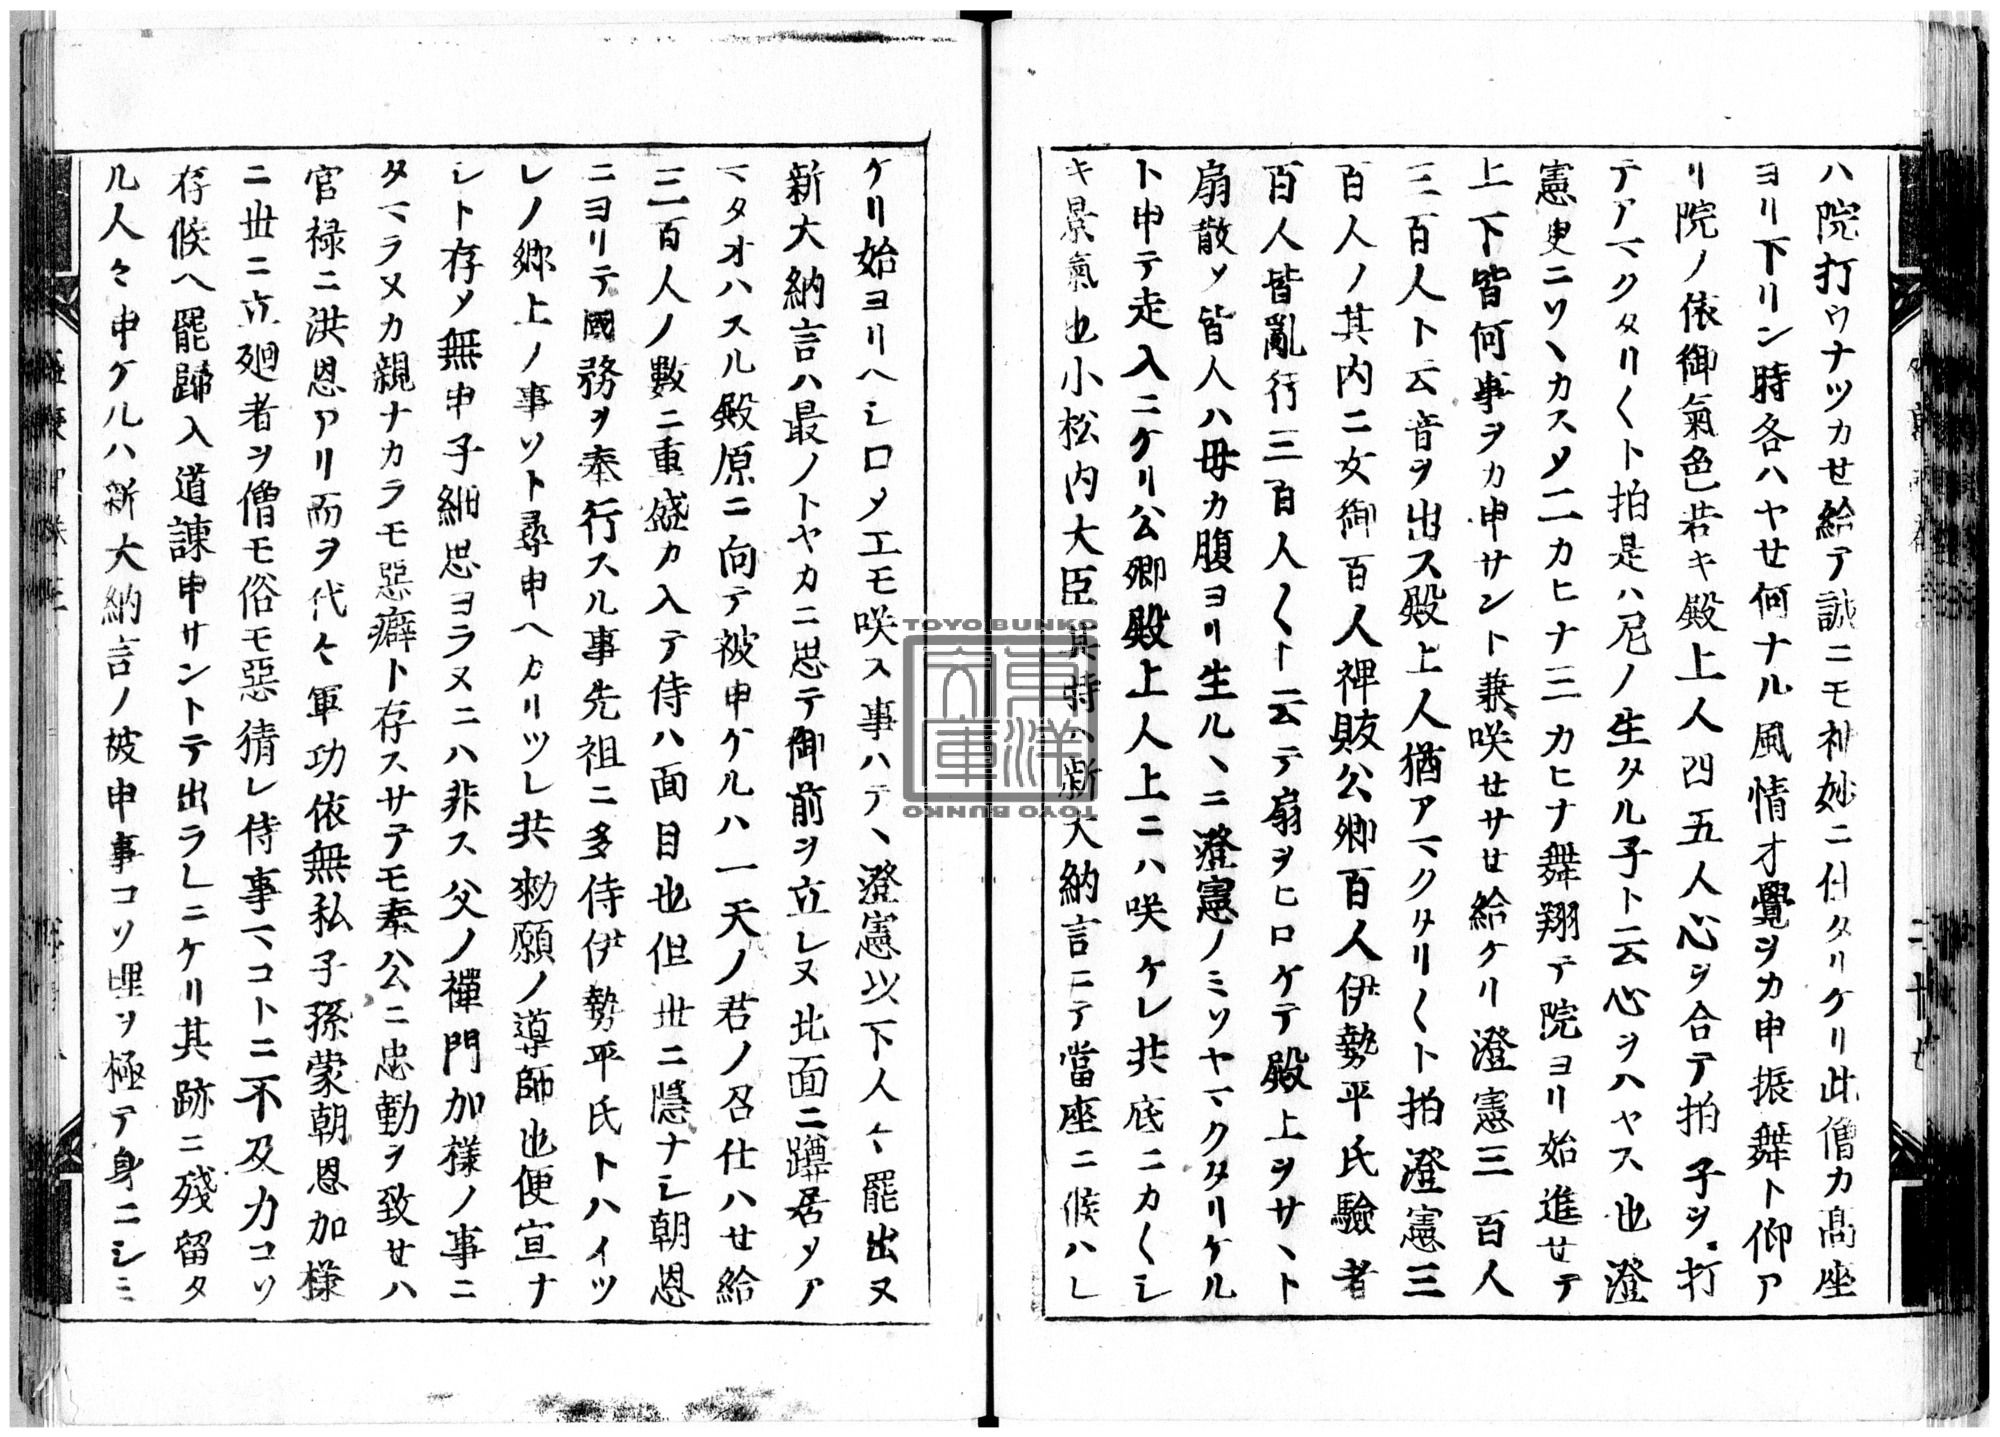 ハ院打ウナツカセ給テ誠ニモ神妙ニ仕タリケリ此僧カ髙座
ヨリ下リン時各ハヤセ何ナル風情才覺ヲカ申振舞ト仰ア
リ院ノ依御氣色若キ殿上人四五人心ヲ合テ拍子ヲ打
テアマクタリ〱ト拍是ハ尼ノ生タル子ト云心ヲハヤス也澄
憲叟ニソヽカスメ二カヒナ三カヒナ舞翔テ院ヨリ始進セテ
上下皆何事ヲカ申サント兼咲セサセ給ケリ澄憲三百人
三百人ト云音ヲ出ス殿上人猶アマクタリ〱ト拍澄憲三
百人ノ其内ニ女御百人裨販公卿百人伊勢平氏驗者
百人皆亂行三百人〱ト云テ扇ヲヒロケテ殿上ヲサヽト
扇散ソ皆人ハ母カ腹ヨリ生ルヽニ澄憲ノミソヤマクタリケル
ト申テ走入ニケリ公卿殿上人上ニハ咲ケレ共底ニカ〱シ
キ景氣也小松内大臣其時ハ新大納言ニテ當座ニ候ハレ
ケリ始ヨリヘシロメエモ咲ス事ハテヽ澄憲以下人々罷出ヌ
新大納言ハ最ノトヤカニ思テ御前ヲ立レヌ北面ニ蹲居メア
マタオハスル殿原ニ向テ被申ケルハ一天ノ君ノ召仕ハセ給
三百人ノ數ニ重盛カ入テ侍ハ面目也但世ニ隱ナシ朝恩
ニヨリテ國務ヲ奉行スル事先祖ニ多侍伊勢平氏トハイツ
レノ鄉上ノ事ソト尋申ヘカリツレ共勑願ノ導師也便宣ナ
シト存メ無申子細思ヨラヌニハ非ス父ノ禪門加樣ノ事ニ
タマラヌカ親ナカラモ惡癖ト存スサテモ奉公ニ忠勤ヲ致セハ
官禄ニ洪恩アリ而ヲ代々軍功依無私子孫蒙朝恩加樣
ニ世ニ立廻者ヲ僧モ俗モ惡猜レ侍事マコトニ不及力コソ
存候ヘ罷歸入道諫申サントテ出ラレニケリ其跡ニ殘留タ
ル人々申ケルハ新大納言ノ被申事コソ理ヲ極テ身ニシミ
TOYO BUNKO
東洋文庫
TOYO BUNKO